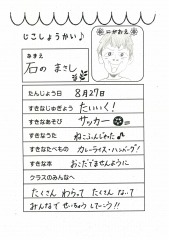 じこしょうかい♪
にがおえ
なまえ
石の まさし
たんじょう日 8月27日
すきなじゅぎょう たいいく!
すきなあそび サッカー
すきなうた ねこふんじゃった
すきなたべもの カレーライス・ハンバーグ!
すきな本 おこだでませんように
クラスのみんなへ
たくさん わらって たくさん ないて
みんなで せいちょうしていこう!!